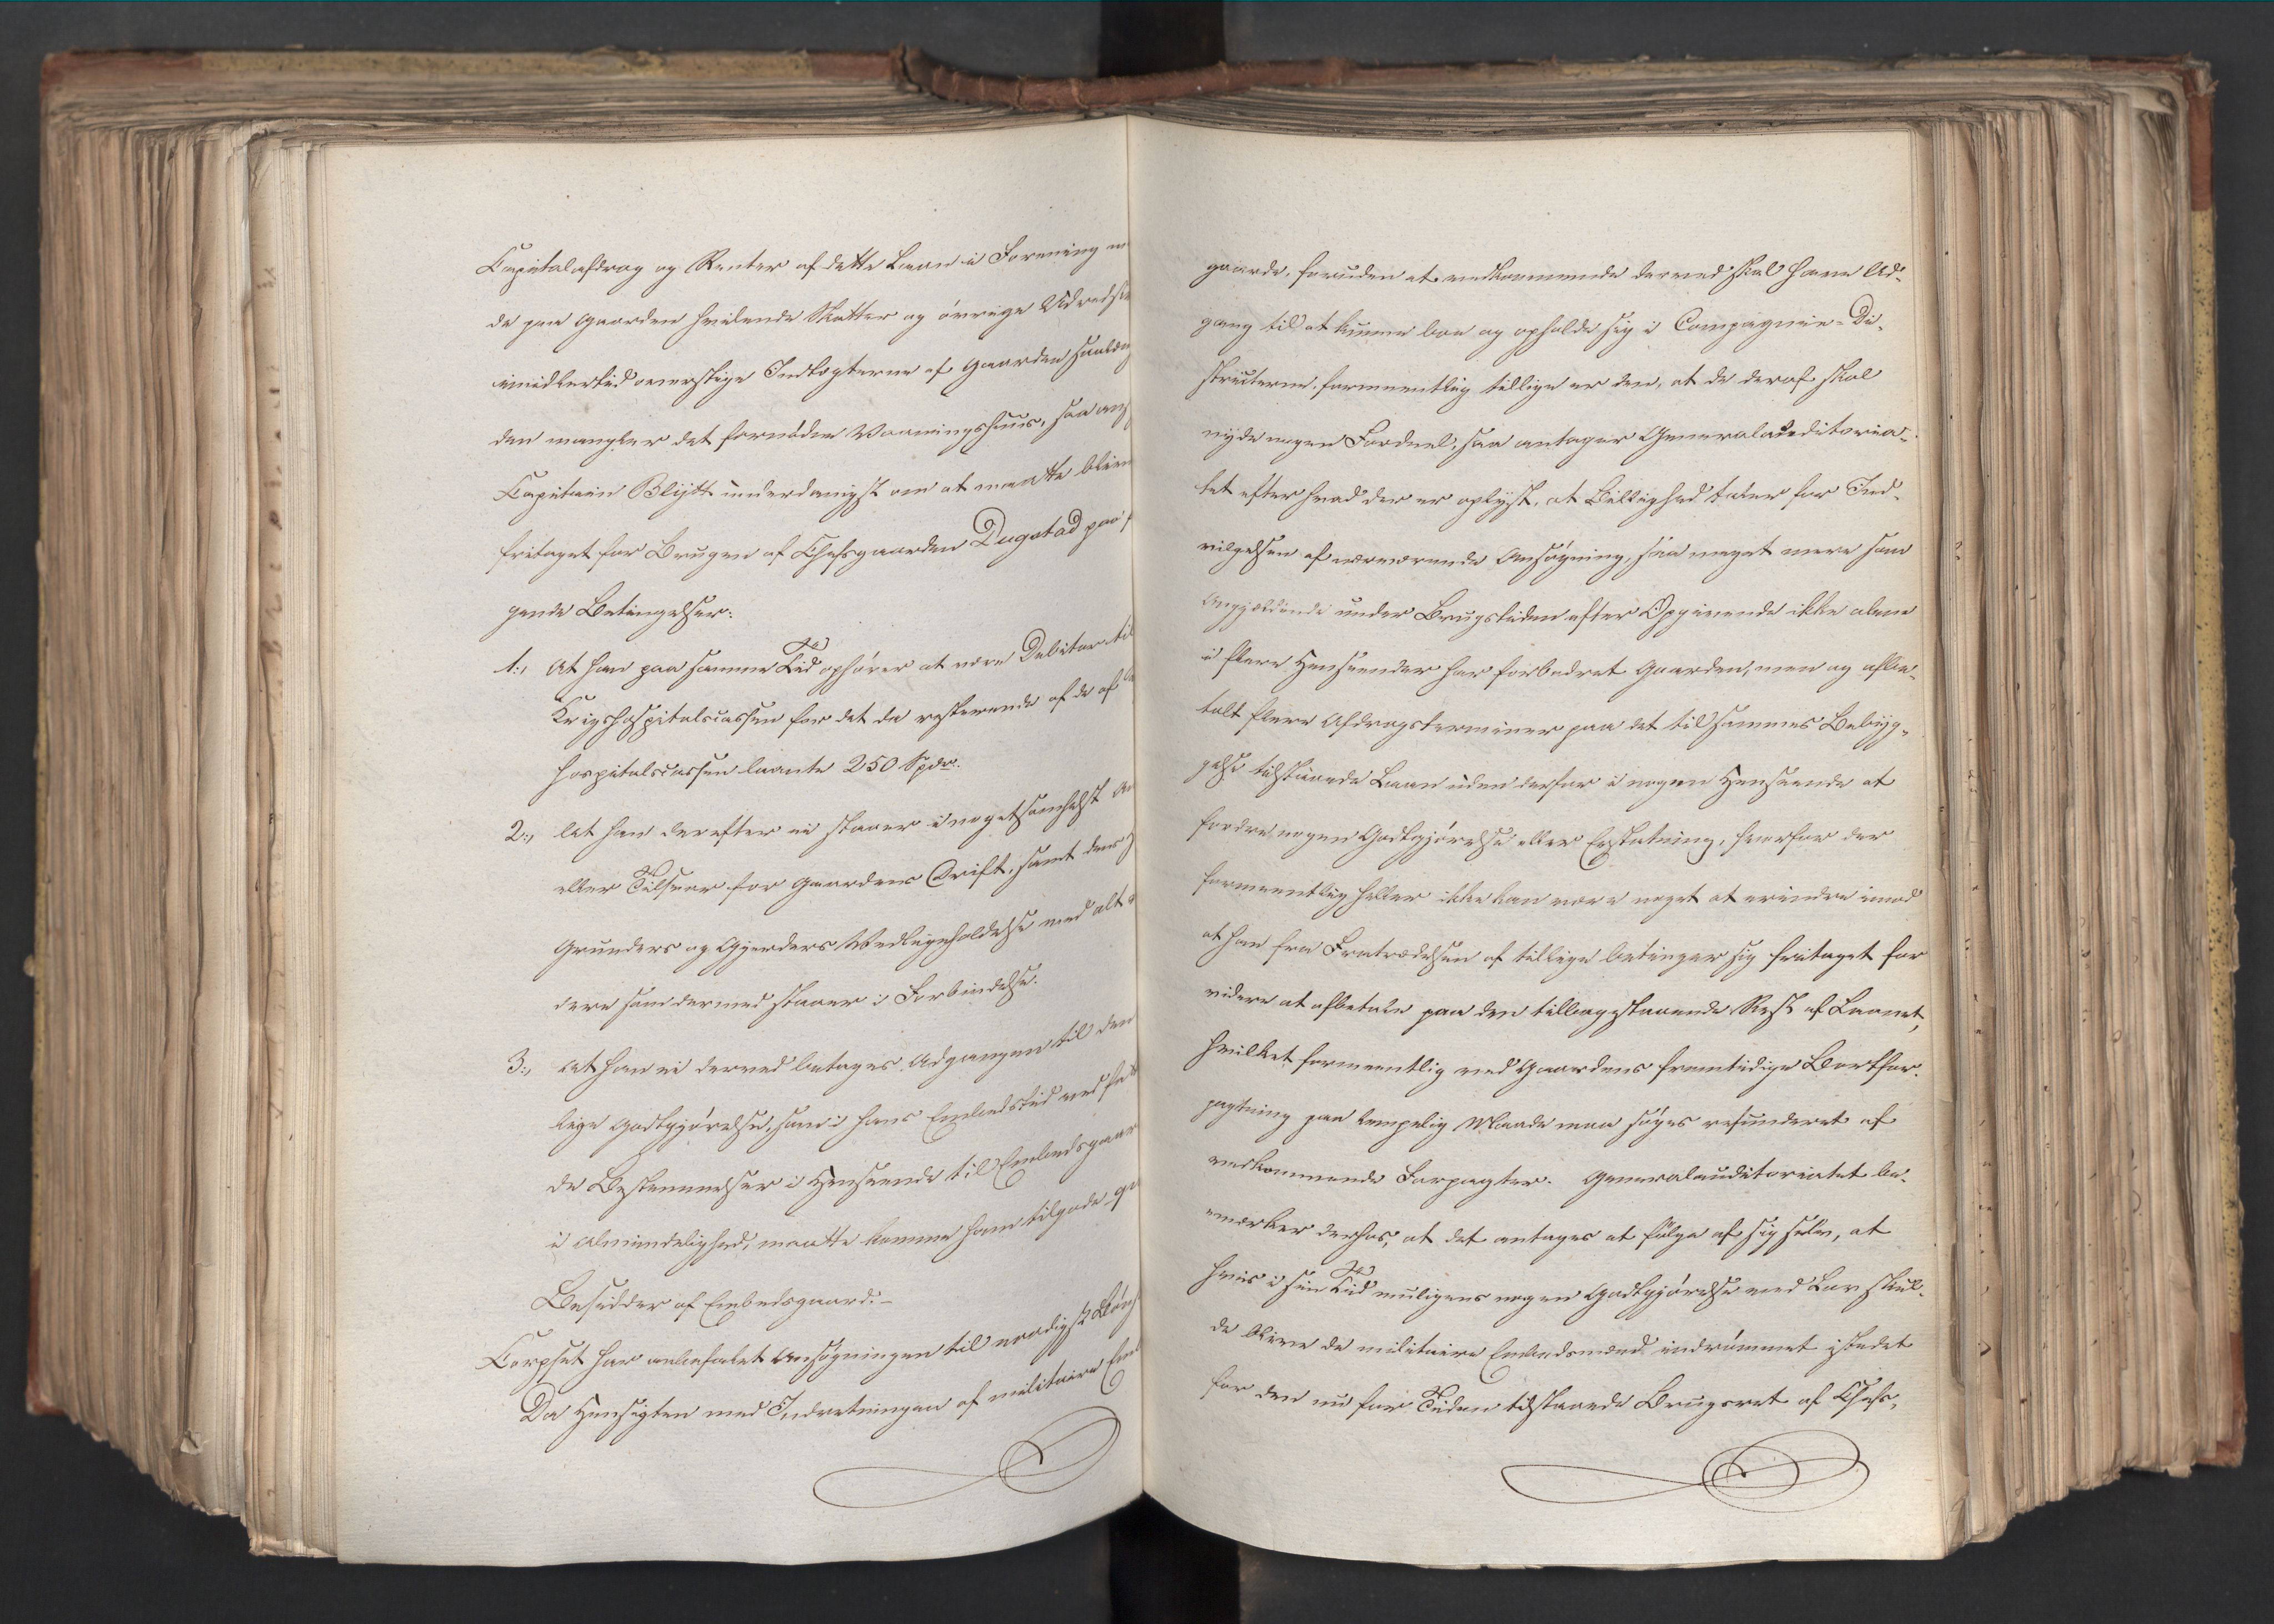 Capitalafdrag og Renter af dette Laan i Forening m
de paa Gaarden hvilende Skatter og övrige Udreds
imidlertid overstige Indtægterne af Gaarden saalæn
den mangler det fornödne Vaaningshuus, saa an
Capitain Blijtt underdanigst om at maatte blive
fritaget for Brugen af Chefsgaarden Dugstad paa f
gende Betingelser:
1., At han paa samme Tid ophörer at være Debitor til
Krigshospitalscassen for det da resterende af de af
Hospitalscassen laante 250 Spdr.
2., At han derefter ei staaer i nogetsomhelst An
eller Tilsvar for Gaardens Drift, samt dens
Grunders og Gjerders Vedligeholdelse med alt
dere som dermed staaer i Forbindelse.
3., At han ei derved betages Adgangen til den
lige Godtgjörelse, som i hans Embedstid ved
de Bestemmelser i Henseende til Embedsgaar
i Almindelighed, maatte komme ham tilgode
Besidder af Embedsgaard.-
Corpset har anbefalet Ansögningen til naadigst Bön
Da Hensigten med Indretningen af militaire Em
gaarde, foruden at vedkommende derved skal have Ad-
gang til at kunne boe og opholde sig i Compagnie-Di-
strikterne, formeentlig tillige er den, at de deraf skal
nyde nogen Fordeel, saa antager Generalauditoria-
tet efter hvad der er oplyst, at Billighed taler for Ind-
vilgelsen af nærværende Ansögning, saa meget mere som
Angjældende under Brugstiden efter Opgivende ikke alene
i flere Henseender har forbedret Gaarden, men og afbe-
talt flere Afdragsterminer paa det til sammes Bebyg-
gelse tilstaaede Laan uden derfor i nogen Henseende at
fordre nogen Godtgjörelse eller Erstatning, hvorfor der
formeentlig heller ikke kan være noget at erindre imod
at han fra Fratrædelsen af tillige betinger sig fritaget for
videre at afbetale paa den tilbagestaaende Rest af Laanet,
hvilket formeentlig ved Gaardens fremtidige Bortfor-
pagtning paa lempelig Maade maa söges refunderet af
vedkommende Forpagter. Generalauditoriatet be-
mærker derhos, at det antages at fölge af sig selv, at
hvis i sin Tid muligens nogen Godtgjörelse ved Lov skul-
de blive de militaire Embedsmænd indrömmet istedet
for den nu for Tiden tilstaaede Brugsret af Chefs-